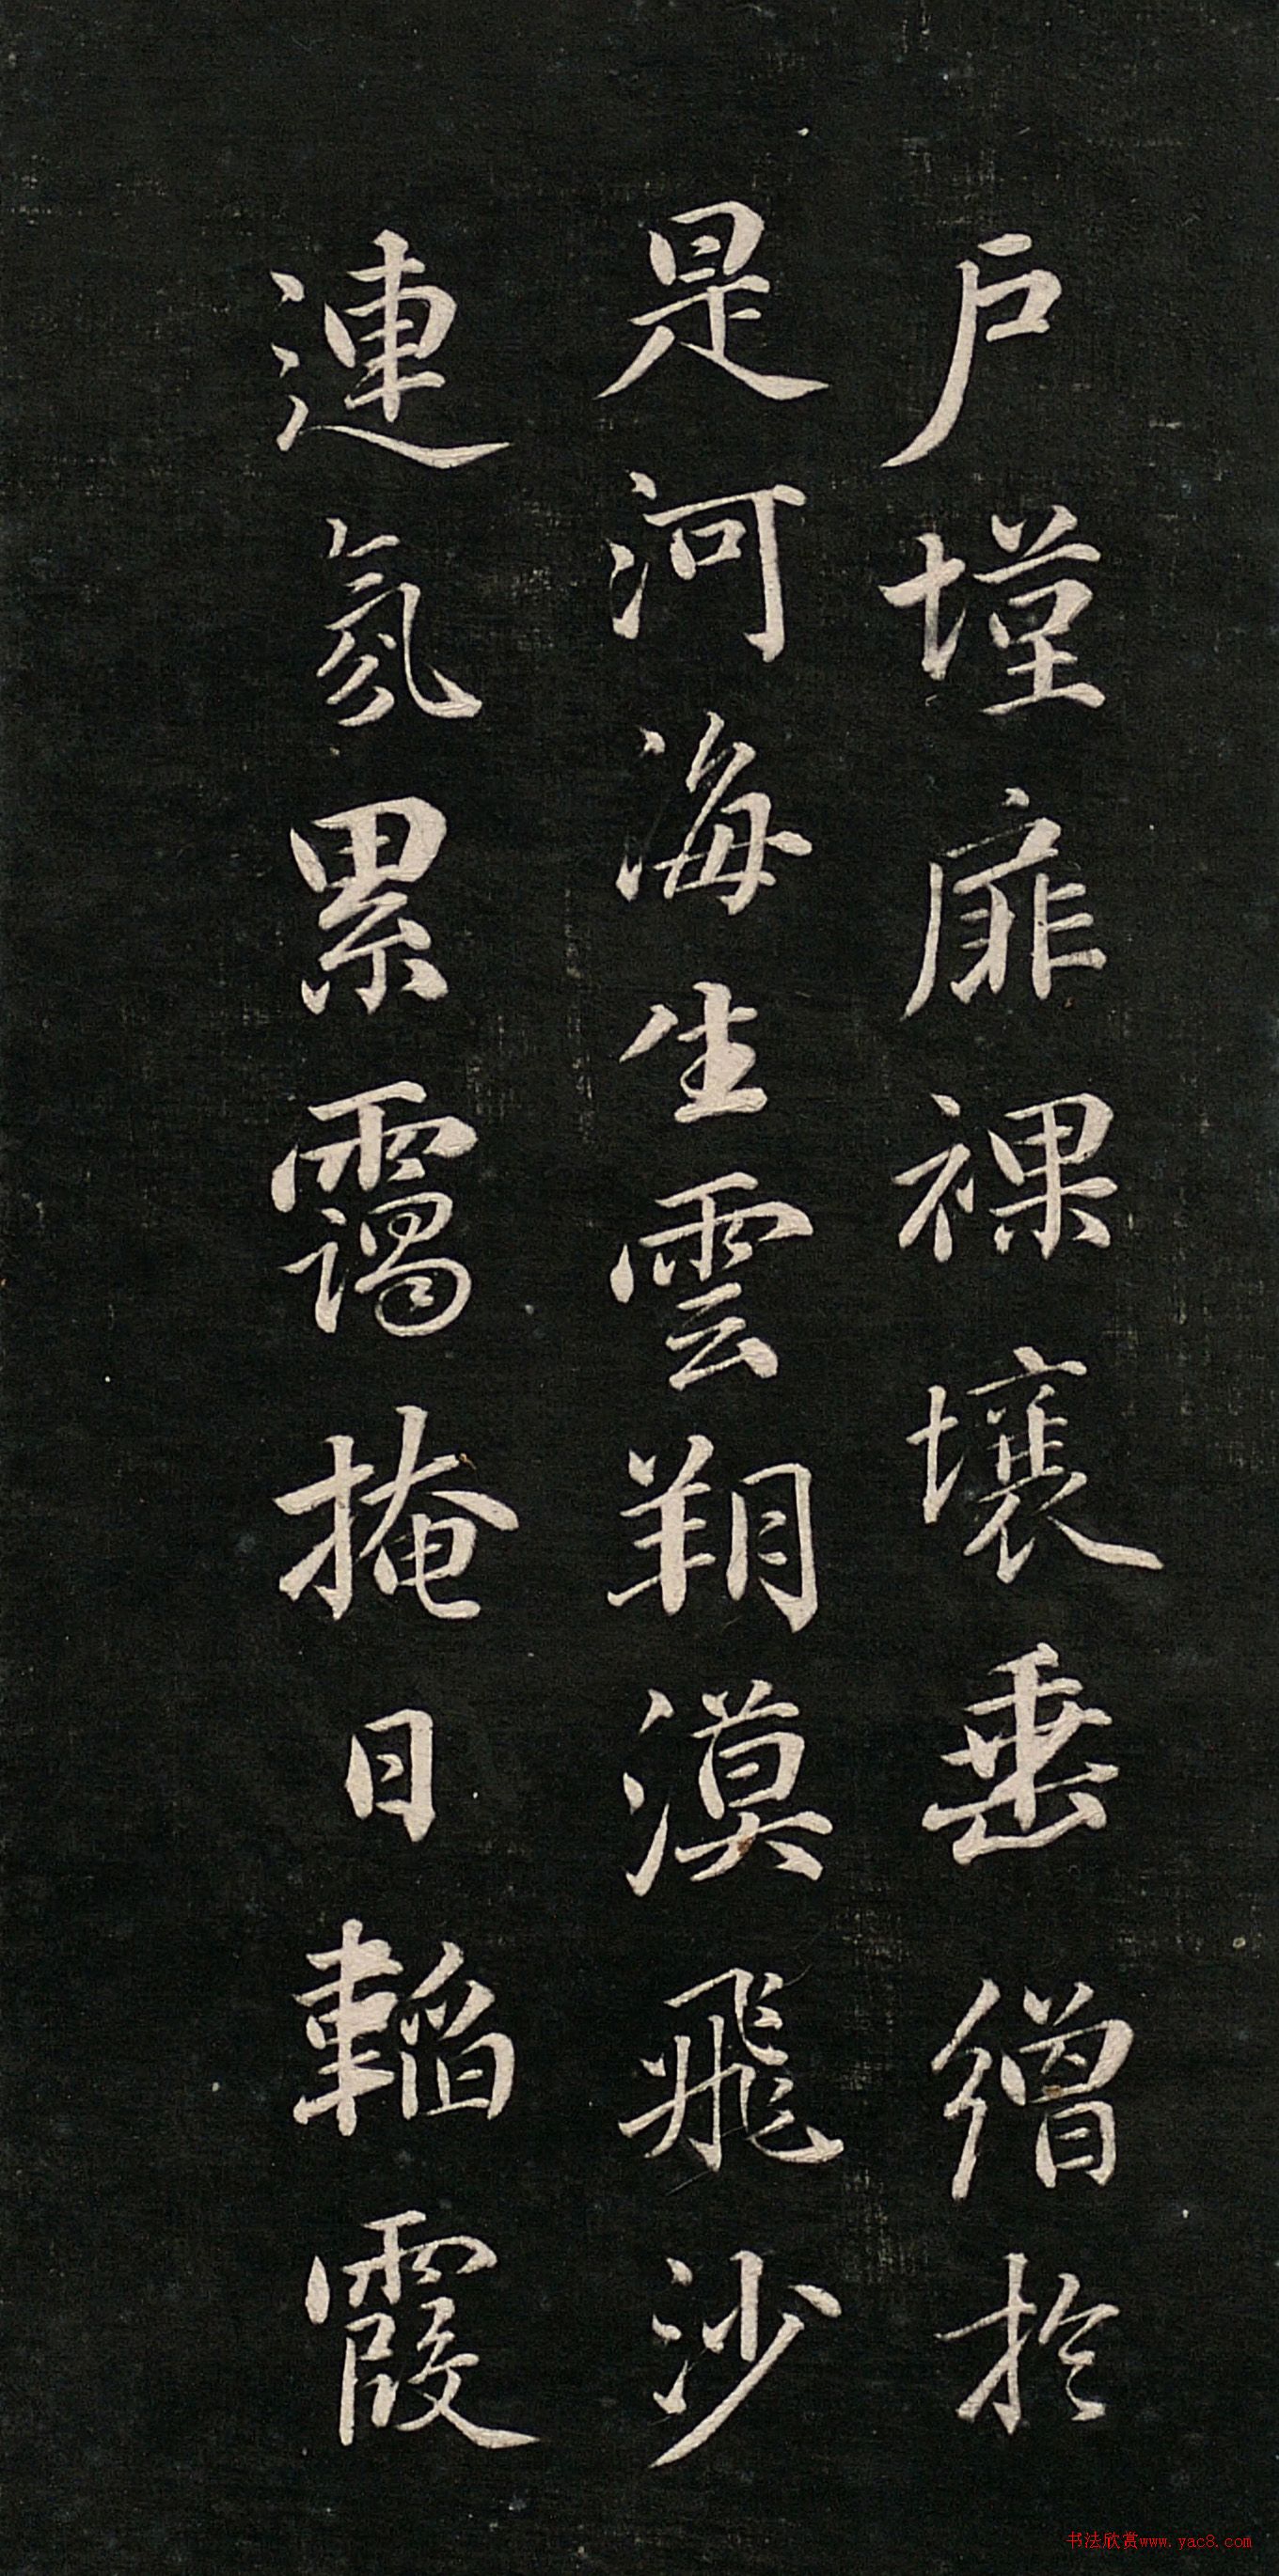 戶墐扉裸壤垂繒於
是河海生雲朔漠飛沙
連氛累靄掩日韜霞
书法欣赏www.yac8.com